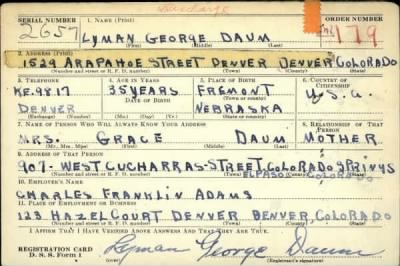 Discharge
SERIAL NUMBER 1. NAME (Print) ORDER NUMBER
2657 LYMAN GEORGE DAUM 179
(First) (Middle) (Last)
2. ADDRESS (Print)
1529 ARAPAHOE STREET DENVER DENVER COLORADO
(Number and street or R. F. D. number) (Town) (County) (State)
3. TELEPHONE 4. AGE IN YEARS 5. PLACE OF BIRTH 6. COUNTRY OF CITIZENSHIP
KE.9817 35 YEARS FREMONT
DATE OF BIRTH (Town or county) U.S.A.
DENVER NEBRASKA
(Exchange) (Number) (Mo.) (Day) (Yr.) (State or country)
7. NAME OF PERSON WHO WILL ALWAYS KNOW YOUR ADDRESS 8. RELATIONSHIP OF THAT PERSON
MRS. GRACE DAUM MOTHER
(Mr., Mrs., Miss) (First) (Middle) (Last)
9. ADDRESS OF THAT PERSON
907- WEST CUCHARRAS-STREET, COLORADO SPRINGS
ELPASO COLORADO
(Number and street or R. F. D. number) (Town) (County) (State)
10. EMPLOYER'S NAME
CHARLES FRANKLIN ADAMS
11. PLACE OF EMPLOYMENT OR BUSINESS
123 HAZEL COURT DENVER DENVER, COLORADO
(Number and street or R. F. D. number) (Town) (County) (State)
I AFFIRM THAT I HAVE VERIFIED ABOVE ANSWERS AND THAT THEY ARE TRUE.
REGISTRATION CARD
D. S. S. Form 1 Lyman George Daum
(Registrant's signature)